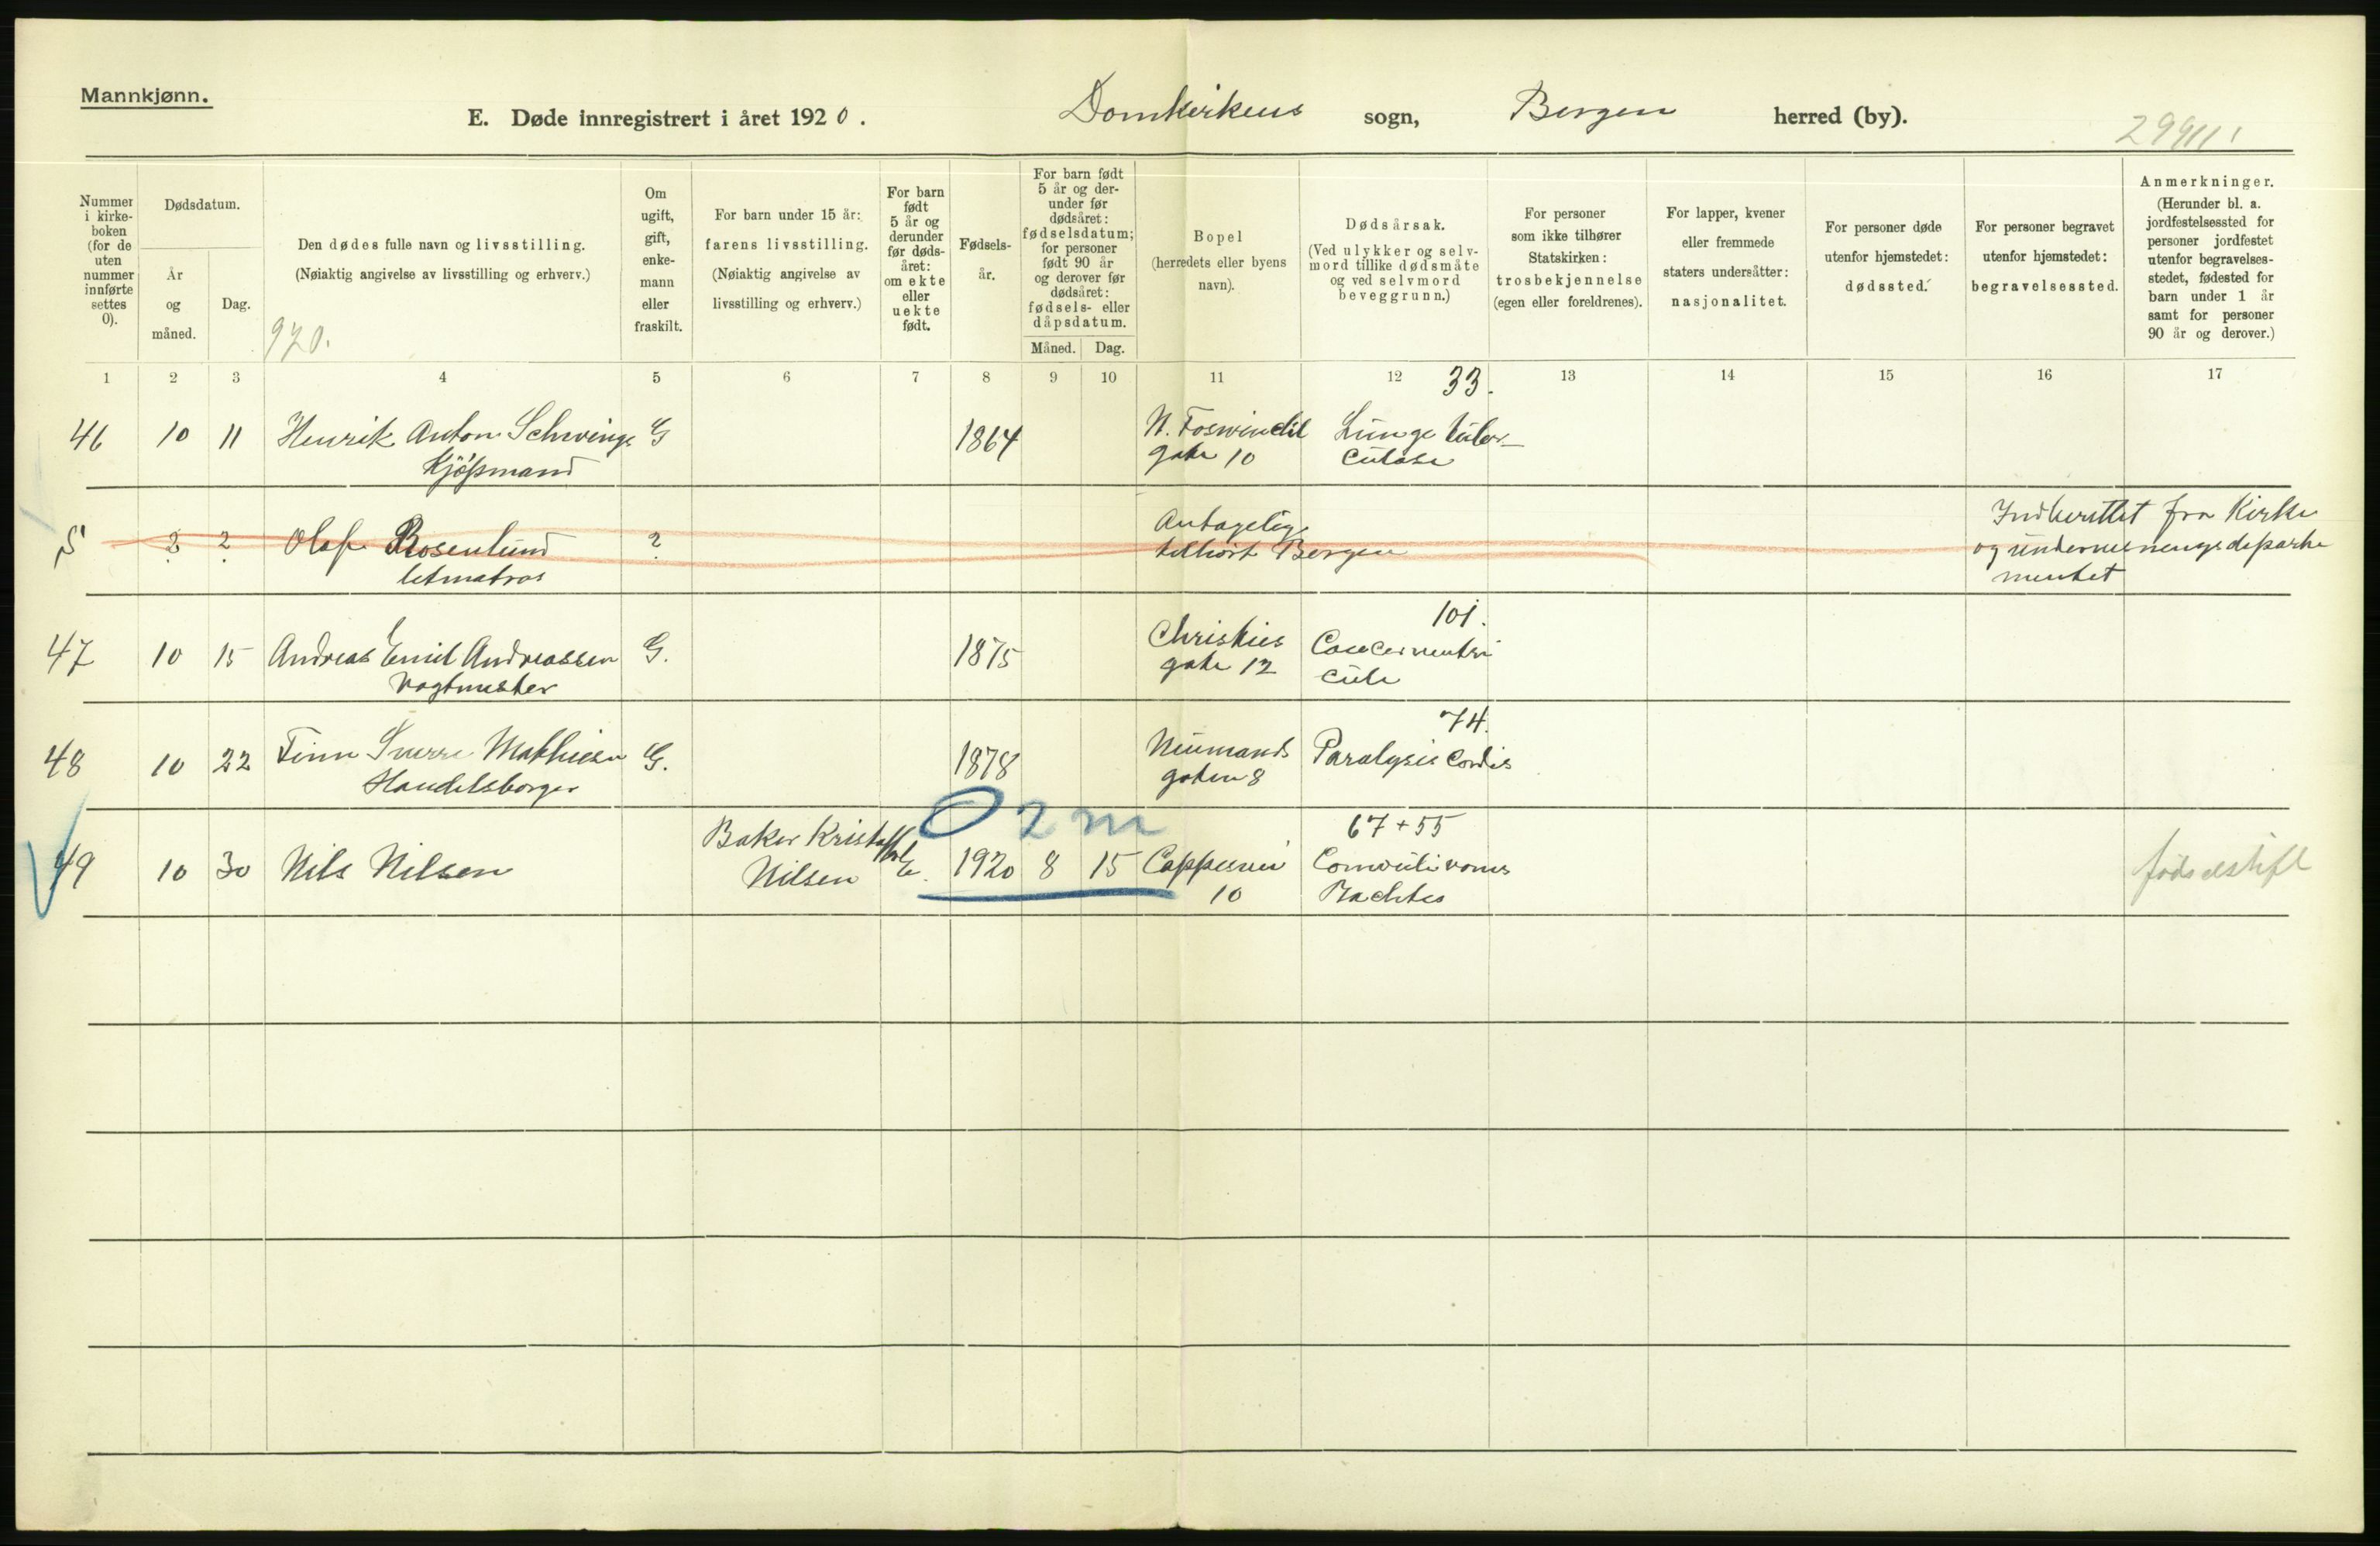 Mannkjønn.
E. Døde innregistrert i året 1920. Domkirkens sogn, Bergen herred (by).
Nummer i kirke-boken (for de uten nummer innførte settes 0).
Dødsdatum.
År og måned.
Dag.
Den dødes fulle navn og livsstilling.
(Nøiaktig angivelse av livsstilling og erhverv.)
920.
Om ugift, gift, enke-mann eller fraskilt.
For barn under 15 år:
farens livsstilling.
(Nøiaktig angivelse av
livsstilling og erhverv.)
For barn født 5 år og derunder før døds-året: om ekte eller uekte født.
Fødsels-år.
For barn født 5 år og der-under før dødsåret: fødselsdatum; for personer født 90 år og derover før dødsåret: fødsels- eller dåpsdatum.
Måned. Dag.
Bopel
(herredets eller byens navn).
Dødsårsak.
(Ved ulykker og selv-mord tillike dødsmåte og ved selvmord beveggrunn.)
For personer som ikke tilhører Statskirken: trosbekjennelse (egen eller foreldrenes).
For lapper, kvener eller fremmede staters undersåtter: nasjonalitet.
For personer døde utenfor hjemstedet: dødssted.
For personer begravet utenfor hjemstedet: begravelsessted.
Anmerkninger.
(Herunder bl. a. jordfestelsessted for personer jordfestet utenfor begravelses-stedet, fødested for barn under 1 år samt for personer 90 år og derover.)
1 2 3 4 5 6 7 8 9 10 11 12 13 14 15 16 17
33.
46 10 11 Henrik Anton Schwings G 1864 N. Foswindel Lunge tuber-
Kjøpmand gate 10 culose
? ? Olaf Rosenlund ? Antagelig
letmatros tilhørt Bergen
Indberettet fra Kirke
og undervisningsdeparte
mentet
101.
47 10 15 Andreas Emil Andreassen G. 1875 Christies Cancer ventri
Vagtmester gate 12 culi
74.
48 10 22 Finn Sverre Mathiesen G. 1878 Neumands Paralysis Cordis
Handelsborger gaten 8
O 2 m
67 + 55
49 10 30 Nils Nilsen Baker Kristoffer E. 1920 8 15 Convulsiones
Nilsen 10 Rachitis
fødselstift